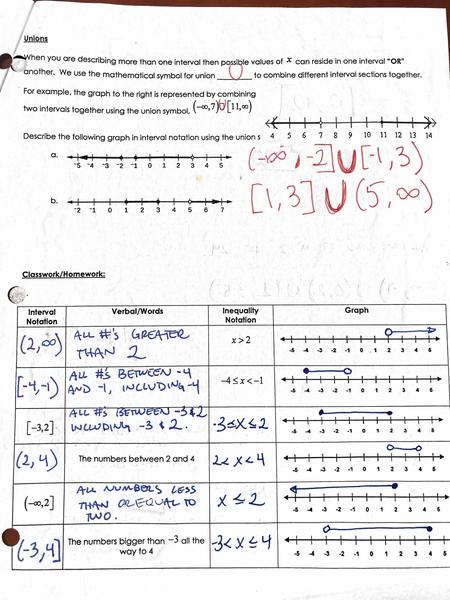 Unions
When you are describing more than one interval then possible values of x can reside in one interval "OR"
another. We use the mathematical symbol for union U to combine different interval sections together.
For example, the graph to the right is represented by combining
two intervals together using the union symbol, (-∞,7)U[11,∞)
4 5 6 7 8 9 10 11 12 13 14
Describe the following graph in interval notation using the union s
a. (-∞, -2] U [-1, 3)
-5 -4 -3 -2 -1 0 1 2 3 4 5
b. [1, 3] U (5, ∞)
-2 -1 0 1 2 3 4 5 6 7
Classwork/Homework:
Interval Notation Verbal/Words Inequality Notation Graph
(2, ∞) ALL #'S GREATER THAN 2 x > 2
-5 -4 -3 -2 -1 0 1 2 3 4 5
[-4, -1) ALL #'S BETWEEN -4 AND -1, INCLUDING -4 -4 ≤ x < -1
-5 -4 -3 -2 -1 0 1 2 3 4 5
[-3,2] ALL #'S BETWEEN -3 & 2 INCLUDING -3 & 2. -3 ≤ X ≤ 2
-5 -4 -3 -2 -1 0 1 2 3 4 5
(2, 4) The numbers between 2 and 4 2 < X < 4
-5 -4 -3 -2 -1 0 1 2 3 4 5
(-∞,2] ALL NUMBERS LESS THAN OR EQUAL TO TWO. X ≤ 2
-5 -4 -3 -2 -1 0 1 2 3 4 5
(-3, 4] The numbers bigger than -3 all the way to 4 -3 < X ≤ 4
-5 -4 -3 -2 -1 0 1 2 3 4 5